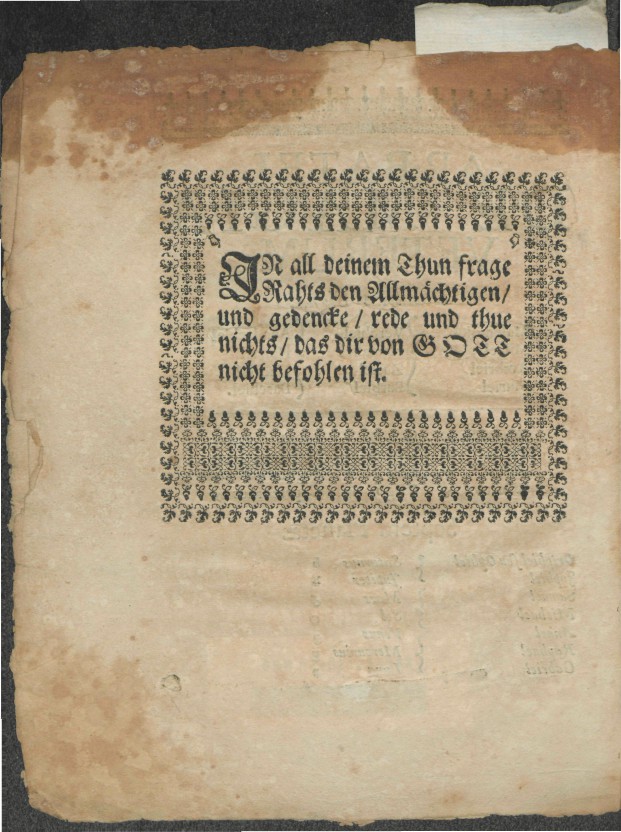 IN all deinem Thun frage
Rahts den Allmächtigen/
und gedencke / rede und thue
nichts/ das dir von GOTT
nicht befohlen ist.